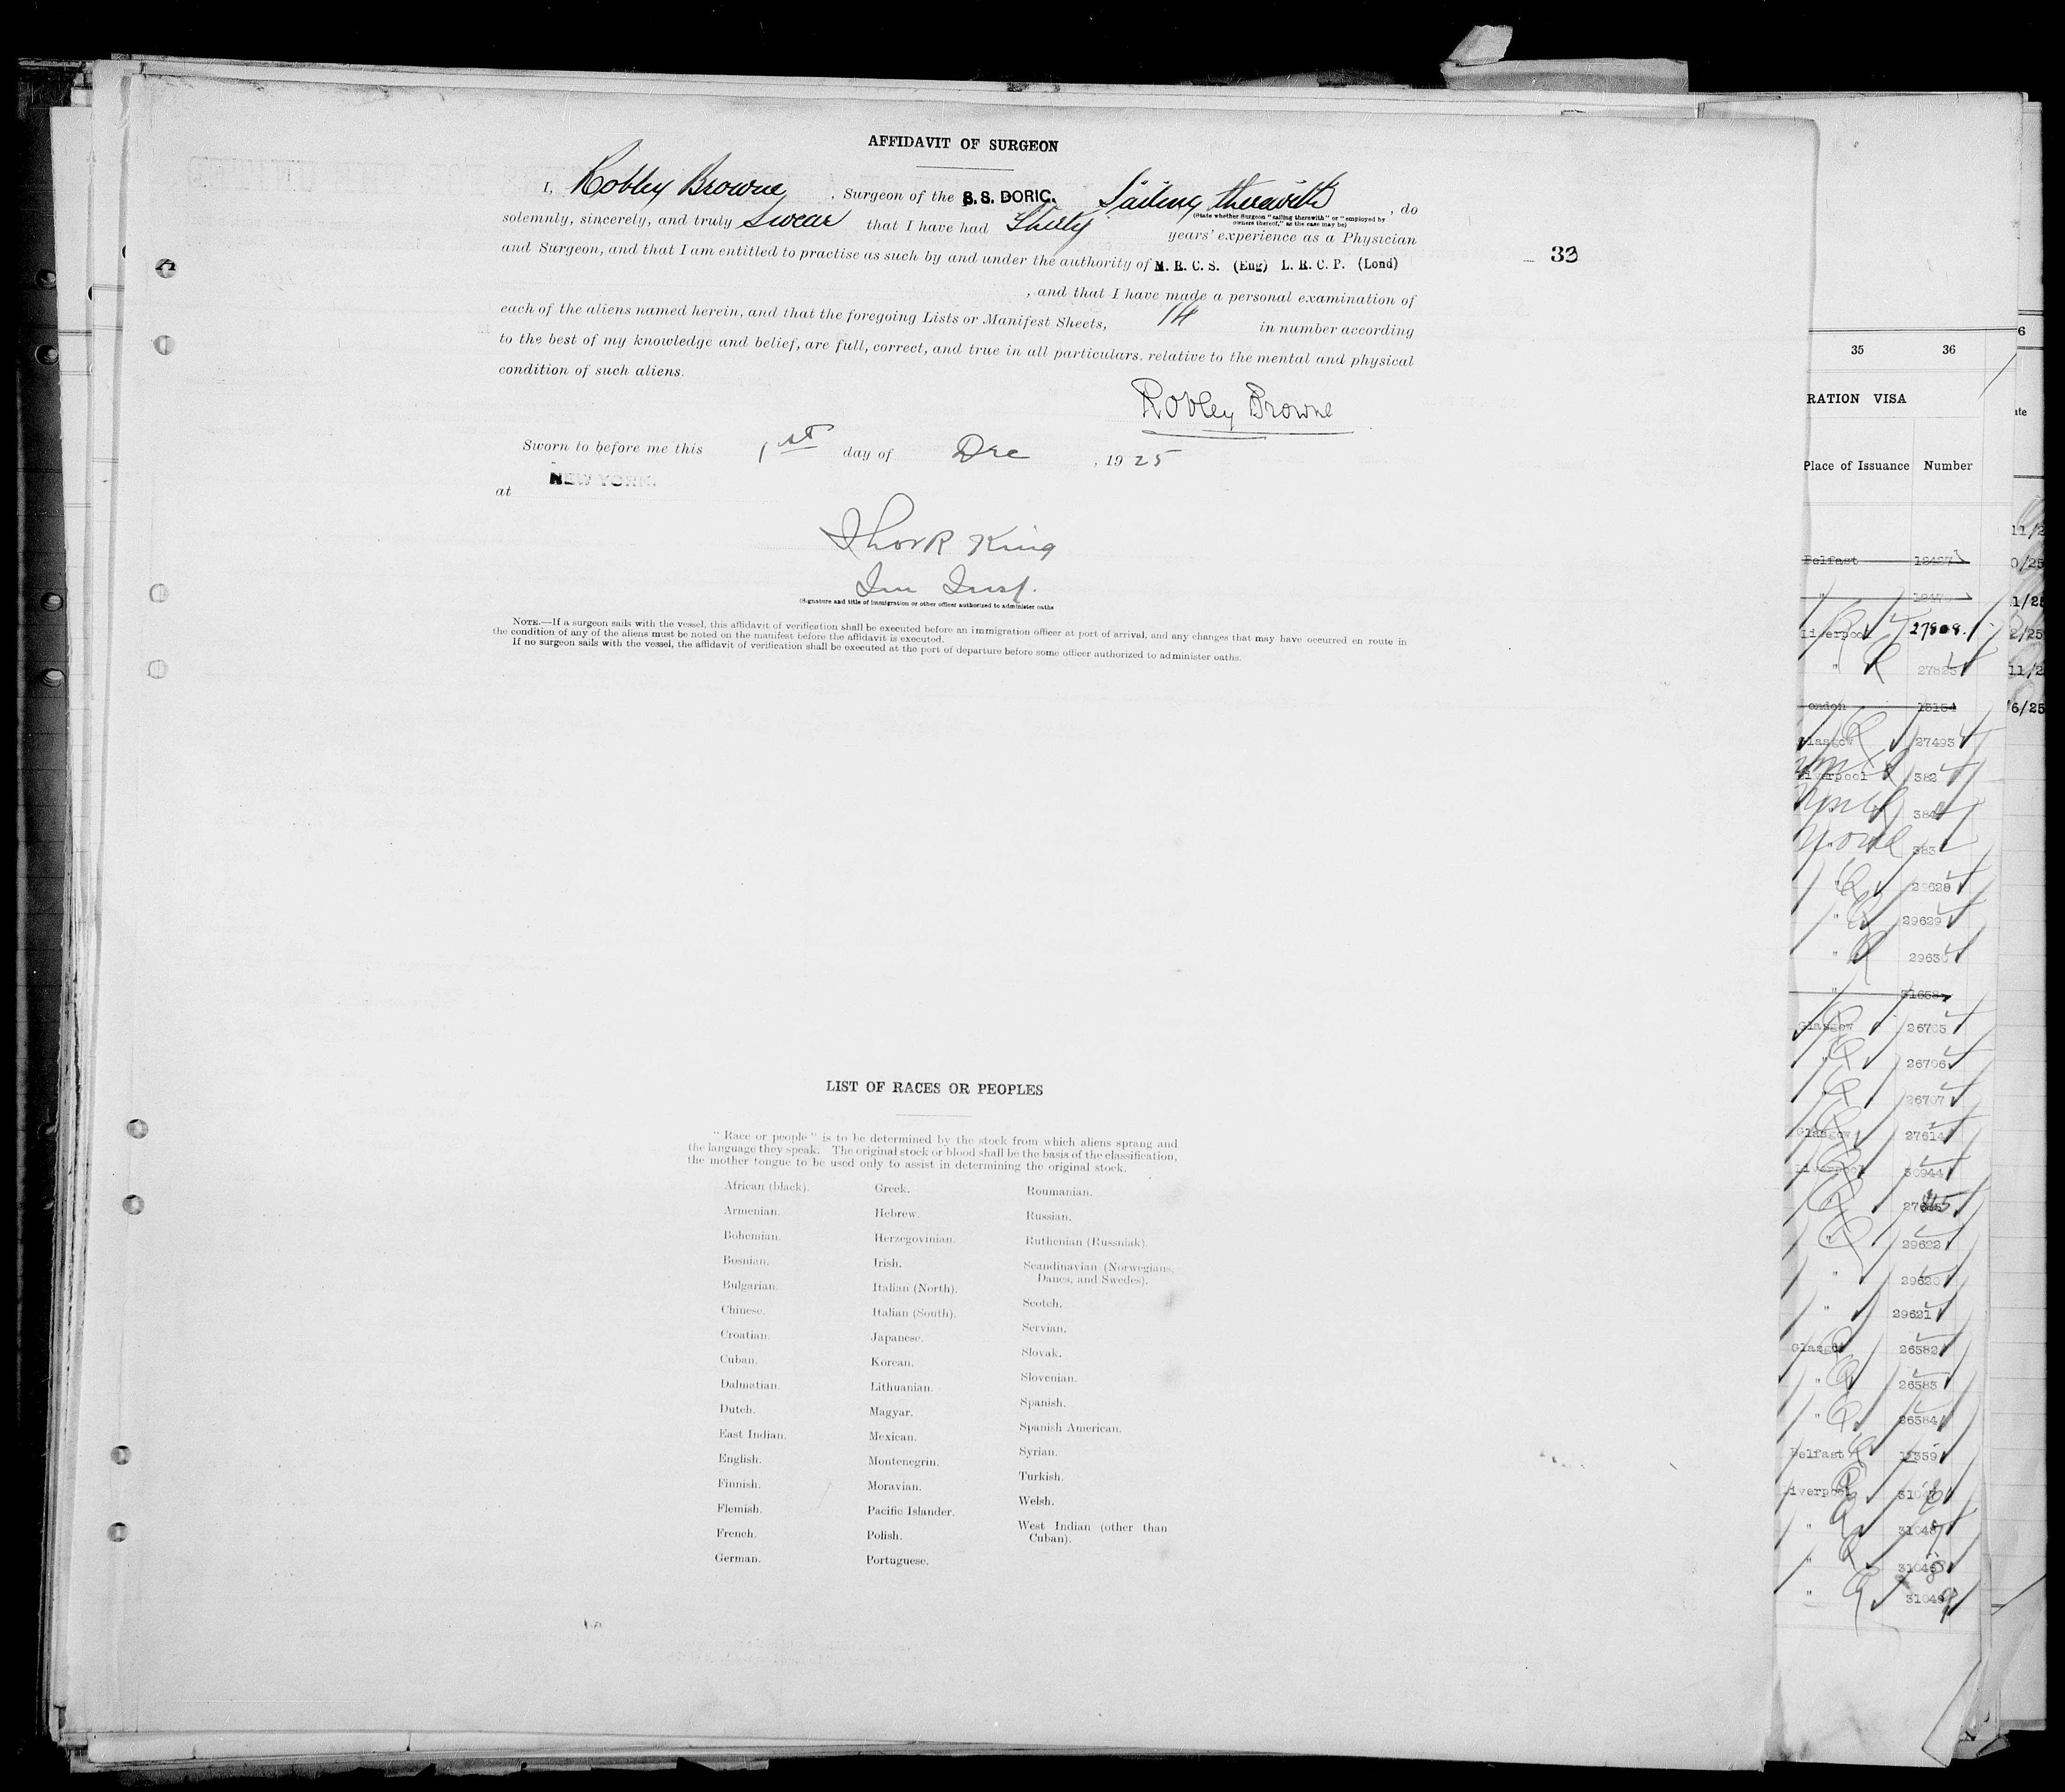 AFFIDAVIT OF SURGEON
I, Robley Browne, Surgeon of the S. S. DORIC. Sailing therewith, do
(State whether Surgeon "sailing therewith" or "employed by
owners thereof," as the case may be)
solemnly, sincerely, and truly swear that I have had Thirty years' experience as a Physician
and Surgeon, and that I am entitled to practise as such by and under the authority of M. R. C. S. (Eng) L. R. C. P. (Lond)
, and that I have made a personal examination of
each of the aliens named herein, and that the foregoing Lists or Manifest Sheets, 14 in number according
to the best of my knowledge and belief, are full, correct, and true in all particulars, relative to the mental and physical
condition of such aliens.
Robley Browne
Sworn to before me this 1st day of Dec, 1925
at NEW YORK.
Thor R King
Im Insp.
(Signature and title of immigration or other officer authorized to administer oaths
NOTE.—If a surgeon sails with the vessel, this affidavit of verification shall be executed before an immigration officer at port of arrival, and any changes that may have occurred en route in
the condition of any of the aliens must be noted on the manifest before the affidavit is executed.
If no surgeon sails with the vessel, the affidavit of verification shall be executed at the port of departure before some officer authorized to administer oaths.
33
LIST OF RACES OR PEOPLES
"Race or people" is to be determined by the stock from which aliens sprang and
the language they speak. The original stock or blood shall be the basis of the classification,
the mother tongue to be used only to assist in determining the original stock.
African (black).
Armenian.
Bohemian.
Bosnian.
Bulgarian.
Chinese.
Croatian.
Cuban.
Dalmatian.
Dutch.
East Indian.
English.
Finnish.
Flemish.
French.
German.
Greek.
Hebrew.
Herzegovinian.
Irish.
Italian (North).
Italian (South).
Japanese.
Korean.
Lithuanian.
Magyar.
Mexican.
Montenegrin.
Moravian.
Pacific Islander.
Polish.
Portuguese.
Roumanian.
Russian.
Ruthenian (Russniak).
Scandinavian (Norwegians,
Danes, and Swedes).
Scotch.
Servian.
Slovak.
Slovenian.
Spanish.
Spanish American.
Syrian.
Turkish.
Welsh.
West Indian (other than
Cuban).
35 36
RATION VISA
Place of Issuance Number
Belfast
"
Liverpool 27808.
"
ondon 15154
Glasgow 27493
Liverpool 382
" 29629
"
"
Glasgow 26705
" 26706
26707
Glasgow 27614
Liverpool 30944
" 29622
" 29620
" 29621
Glasgow 26582
" 26583
" 26584
Belfast
iverpool
"
"
"
6
ate
11/2
0/25
1/25
2/25
11/2
6/25